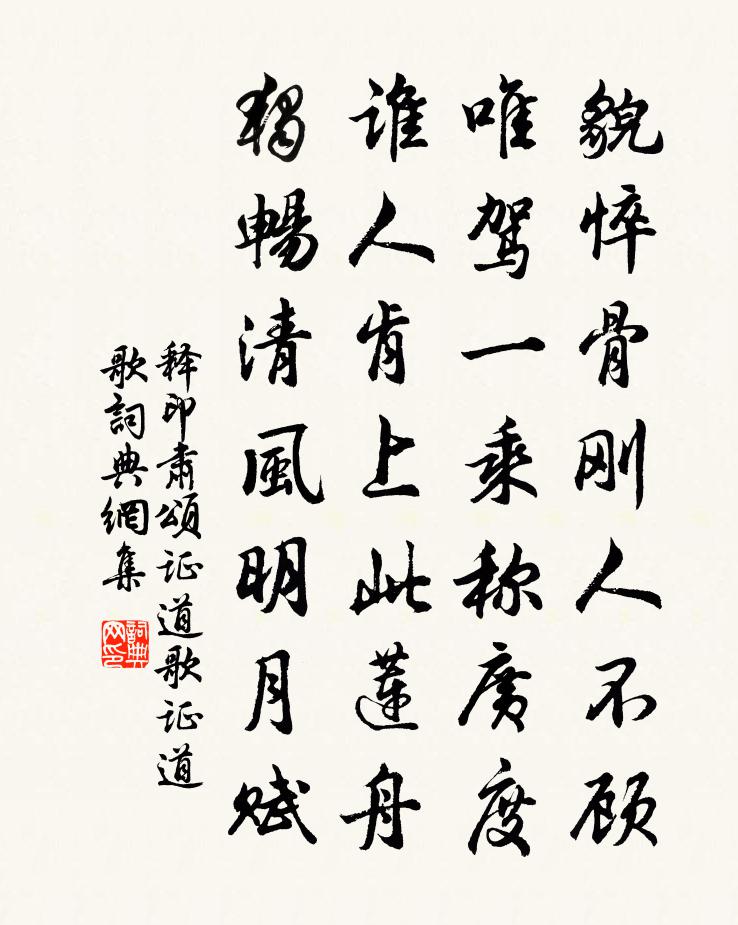 貌悴骨刚人不顾
唯驾一乘称廣度
谁人肯上此蓮舟
獨暢清風明月赋
释印肃頌证道歌证道
歌詞典網集
詞典网印